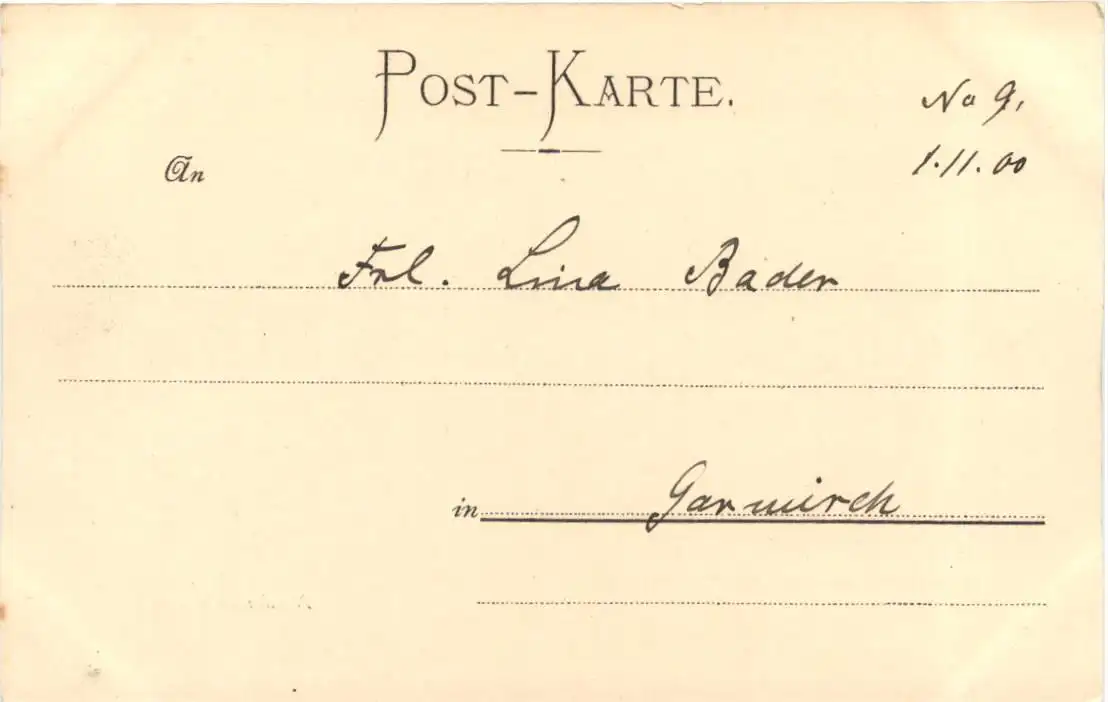 POST-KARTE.
No 9,
1.11.00
An
Frl. Lina Bader
in Garmisch